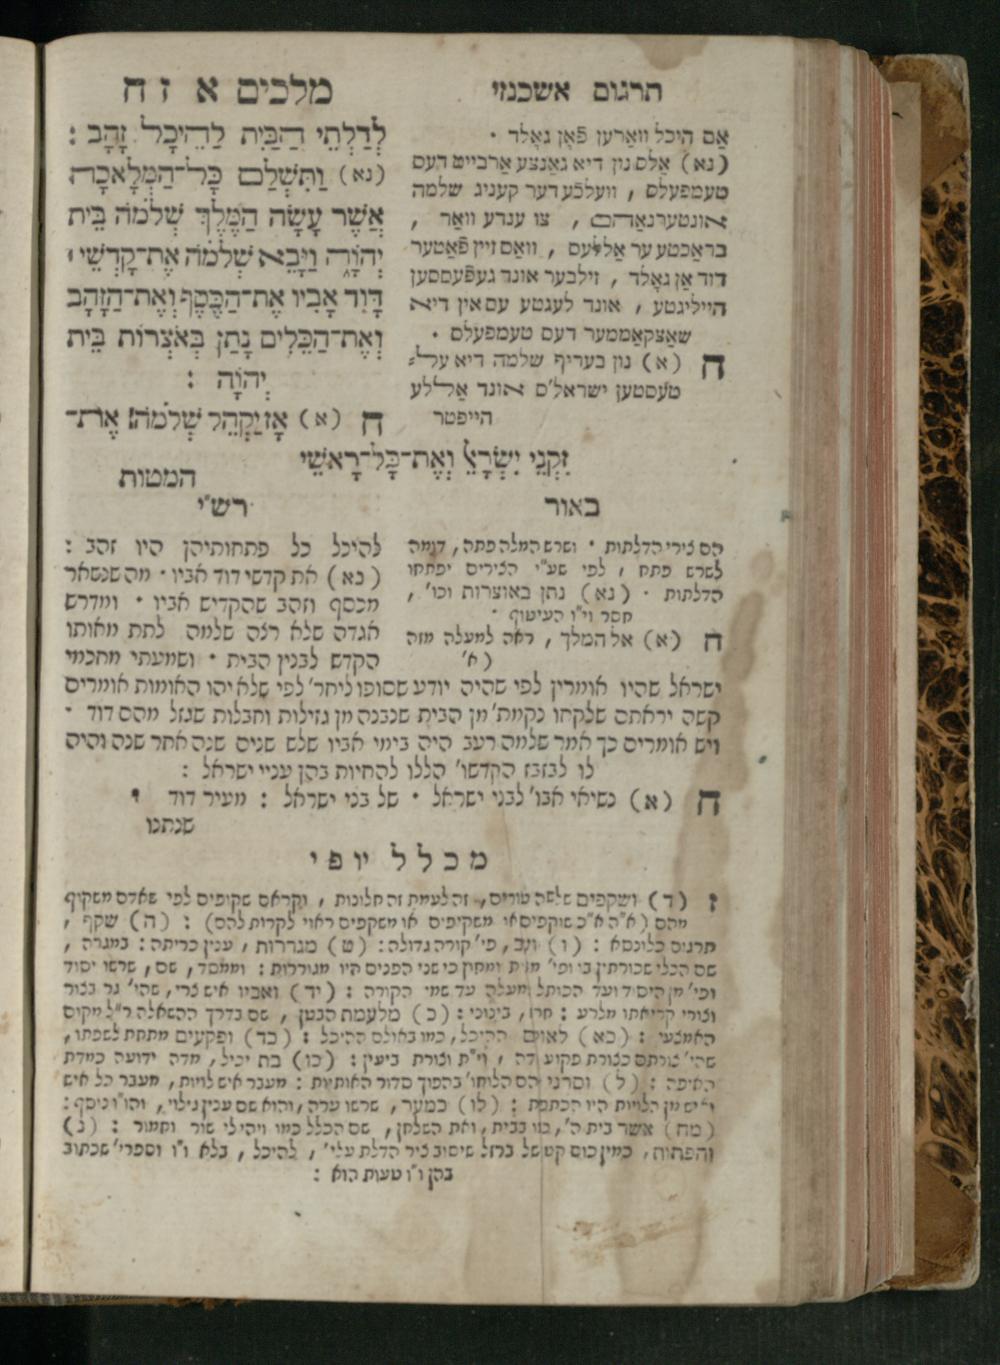 תרגום אשכנזי
מלכים א ז ח
אַם היכל ווארען פֿאָן גאָלד .
(נא) אַלס נון דיא גאַנצע אַרבייט דעס
טעמפעלס , וועלכֿע דער קעניג שלמה
אונטערנאַהם , צו ענדע וואַר ,
בראַכטע ער אַללעס , וואס זיין פֿאָטער
דוד אָן גאָלד , זילבער אונד געפֿעססען
הייליגטע , אונד לעגטע עס אין דיא
שאַצקאַממער דעס טעמפעלס .
ח (א) נון בעריף שלמה דיא על־
טעסטען ישראל'ס אונד אַללע
הייפטר
לְדַלְתֵי הַבַּיִת לַהֵיכָל זָהָב :
(נא) וַתִּשְׁלַם כָּל־הַמְּלָאכָה
אֲשֶׁר עָשָׂה הַמֶּלֶךְ שְׁלֹמֹה בֵּית
יְהוָֹה וַיָּבֵא שְׁלֹמֹה אֶת־קָדְשֵׁי ׀
דָּוִד אָבִיו אֶת־הַכֶּסֶף וְאֶת־הַזָּהָב
וְאֶת־הַכֵּלִים נָתַן בְּאֹצְרוֹת בֵּית
יְהוָֹה :
ח (א) אָז יַקְהֵל שְׁלֹמֹה אֶת־
זִקְנֵי יִשְׂרָאֵל וְאֶת־כָּל־רָאשֵׁי
המטות
באור
הם צירי הדלתות . ושרש המלה פתה , דומה
לשרש פתח , לפי שע"י הצירים יפתחו
הדלתות . (נא) נתן באוצרות וכו' ,
חסר וי"ו העיטוף .
ח (א) אל המלך , ראה למעלה מזה
(א'
רש"י
להיכל כל פתחותיהן היו זהב :
(נא) את קדשי דוד אביו . מה שנשאר
מכסף וזהב שהקדיש אביו . ומדרש
אגדה שלא רצה שלמה לתת מאותו
הקדש לבנין הבית . ושמעתי מחכמי
ישראל שהיו אומרין לפי שהיה יודע שסופו ליחר' לפי שלא יהו האומות אומרים
קשה יראתם שלקחו נקמת' מן הבית שנבנה מן גזילות וחבלות שגזל מהם דוד .
ויש אומרים כך אמר שלמה רעב היה בימי אביו שלש שנים שנה אחר שנה והיה
לו לבזבז הקדשו' הללו להחיות בהן עניי ישראל :
ח (א) נשיאי אבו' לבני ישראל . של בני ישראל : מעיר דוד
שנתנו
מכלל יופי
ז (ד) ושקפים שלשה טורים, זה לעמת זה חלונות , וקראם שקופים לפי שאדם משקיף
מהם (א"ה א"כ שוקפים או משקיפים או משקפים ראוי לקרות להם) : (ה) שקף ,
תרגום כלונסא : (ו) ועב, פי' קורה גדולה : (ט) מגררות , ענין כריתה : במגרה ,
שם הכלי שכורתין בו ופי' מבית ומחוץ כי שני הפנים היו מגוררות : וממסד, שם, שרשו יסוד
ופי' מן היסוד ועד הכותל למעלה עד שמי הקורה : (יד) ואביו איש צרי, שהי' גר בצור
וצורי קריאתו מלרע : חרו, בינוני : (כ) מלעמת הבטן , שם בדרך ההשאלה ר"ל מקום
האמצעי : (כא) לאולם ההיכל, כמו באולם ההיכל : (כד) ופקעים מתחת לשפתו,
שהי' צורתם כצורת פקוע דה , וי"ת וצורת ביעין : (כו) בת יכיל, מדה ידועה כמדת
האיפה : (ל) וסרני הם הלוחו' בהפוך סדור האותיות : מעבר איש לויות, מעבר כל איש
ואיש מן הלויות היו הכתפת : (לו) כמער, שרשו ערה, והוא שם ענין גילוי, והו"ו נוסף :
(מח) אשר בית ה', כמו בבית, ואת השלחן, שם הכלל כמו ויהי לי שור וחמור : (נ)
והפתות, כמין כוס קטן של ברזל שיסוב ציר הדלת עלי' , להיכל, בלא ו"ו וספרי' שכתוב
בהן ו"ו טעות הוא :